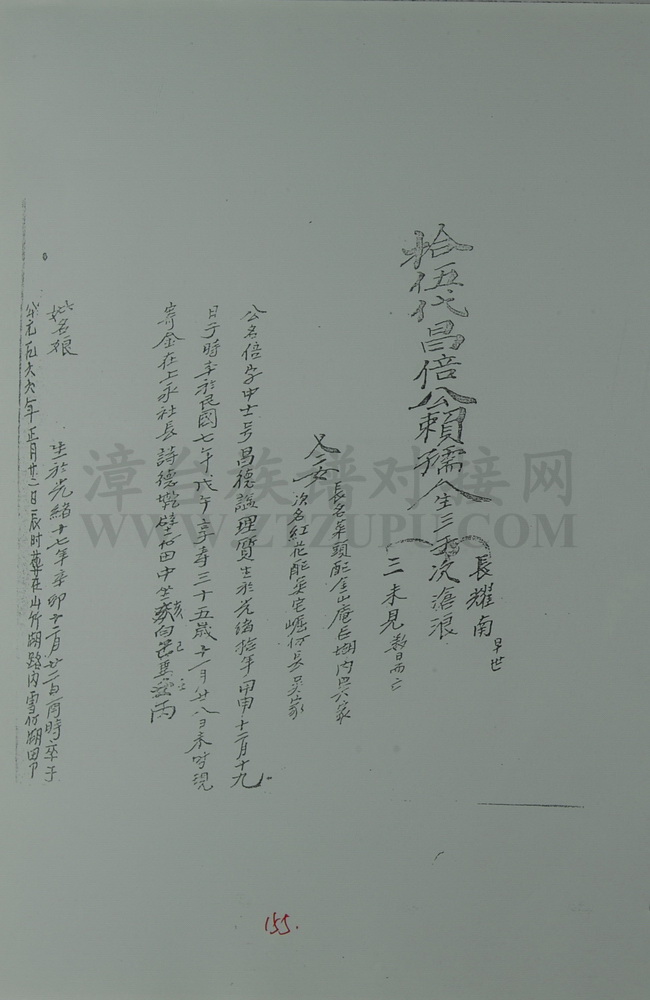 拾伍代昌倍公賴孺人生三子
長耀南早世
次滄浪
三未見数日而亡
又二女
長名草頭配金山庵后塘内吳家
次名紅花配奎宅崛仔長吳家
公名倍字中士号昌德諡理質生於光绪拾年甲申十二月十九
日子時卒於民國七年戊午享寿三十五歲十一月廿八日未时現
寄金在上永社長詩德 田中坐 向
妣名娘 生於光绪十七年辛卯十一月廿二日酉時卒于
公元一九六六年正月廿二日辰时葬在山竹湖路内雪仔湖田
155.
漳台族谱对接网
WWW.ZTZUPU.COM